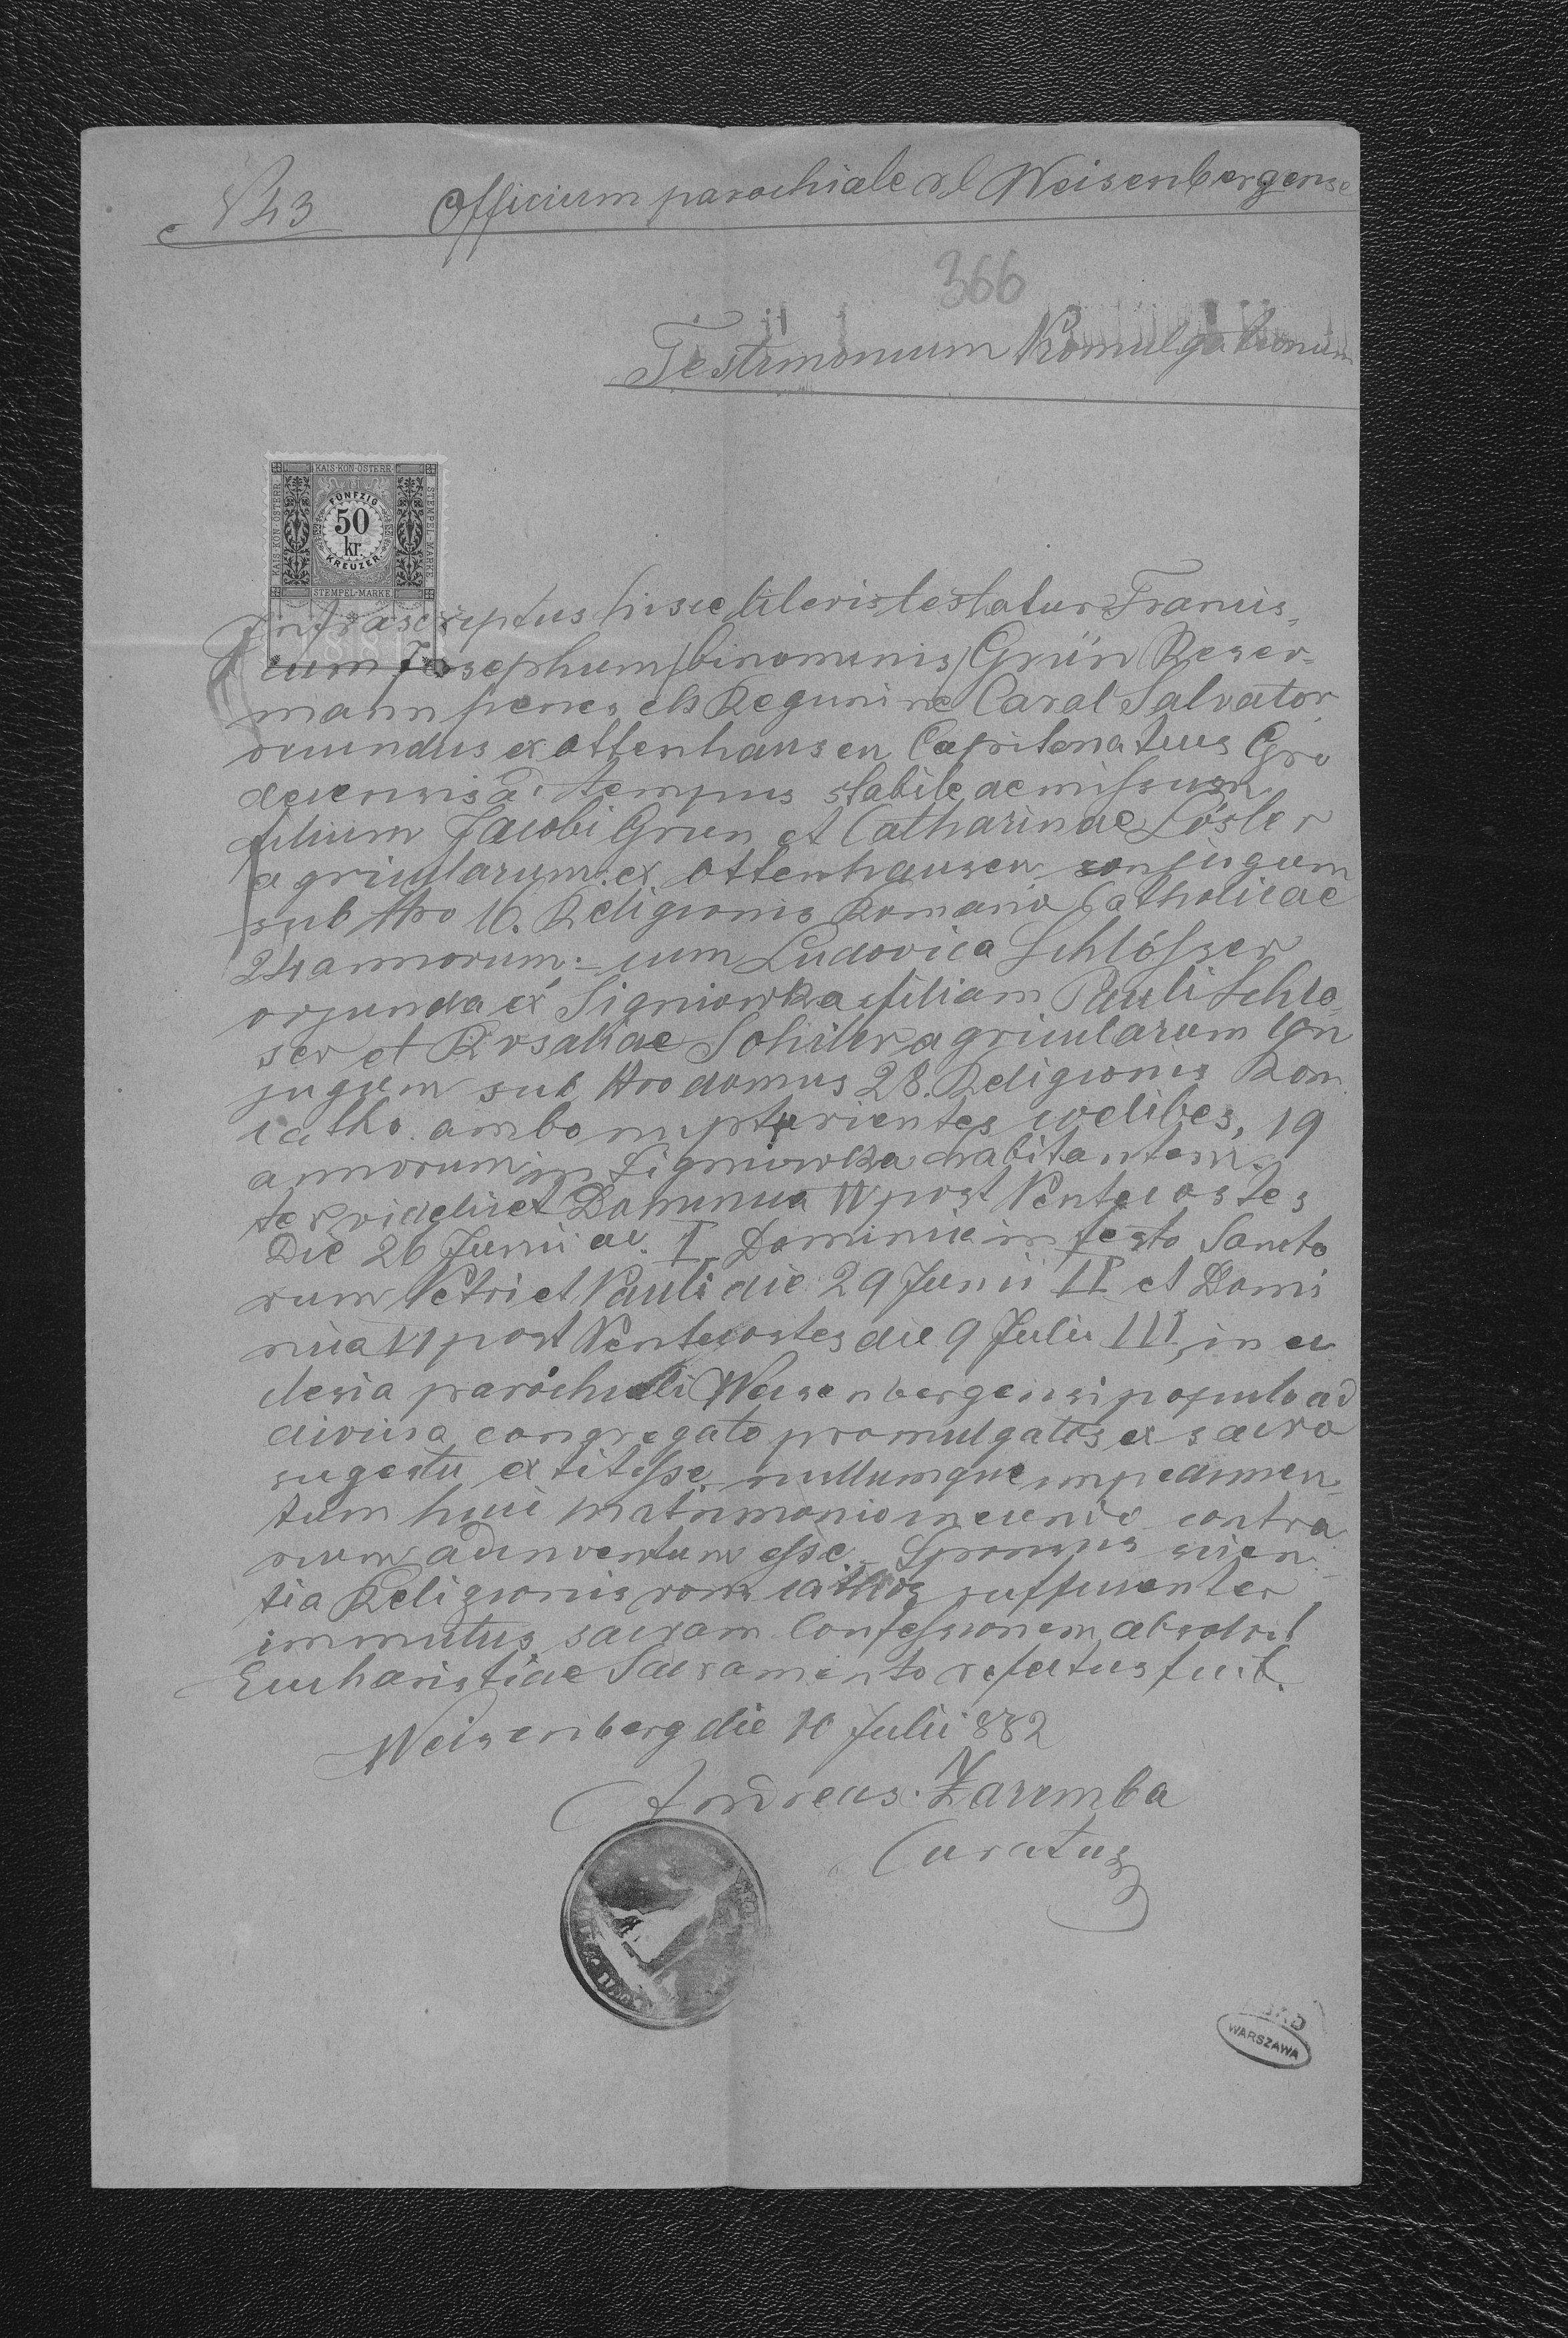 N 43 Officium parochiale r l Weisenbergense
366
Testimonium Promulgationum
KAIS·KÖN·ÖSTERR
KAIS·KÖN·ÖSTERR
STEMPEL-MARKE
FÜNFZIG
50
kr.
KREUZER
STEMPEL-MARKE
1881
Infrascriptus hisce literis testatur Francis,
cum Josephum /binominis/ Grün Reser=
mann penes Regimine Carol Salvator
oriundus ex Ottenhausen Capitenatuus Gro
decensis a. tempus stabile demissum
filium Jacobi Grun et Catharinae Lösler
agricularum ex Ottenhausen conjugum
sub Nro 16. Religionis Romano Catholicae
24 annorum.– cum Ludovica Schlösser
orjunda ex Signiowka filiam Pauli Schlo=
ser et Rosaliae Sohiler agricularum Con
jugum sub Nro domus 28. Religionis Rom
catho. ambo nupturientes coelibes, 19
annorum in Signiowka habitantem.
ter videlicet Dominica IV post Pentecostes
Die 26 Junii ac. I Dominica in festo Sancto
rum Petri et Pauli die 29 Junii II et Domi
nica VI post Pentecostes die 9 Julii III, in ec
clesia parochiali Weisenbergensi populo ad
divina congregato promulgatos ex sacro
sugestu extitisse nullumque impedimen=
tum huic matrimonio ineundo contra
rium adinventum esse. Sponsus scien=
tia Religionis rom cathos sufficienter
immutus sacram Confessionem absolvit
Eucharistiae Sacramento refectus fuit.
Weisenberg die 10 Julii 882
Andreas Zaremba
Curatus
WARSZAWA